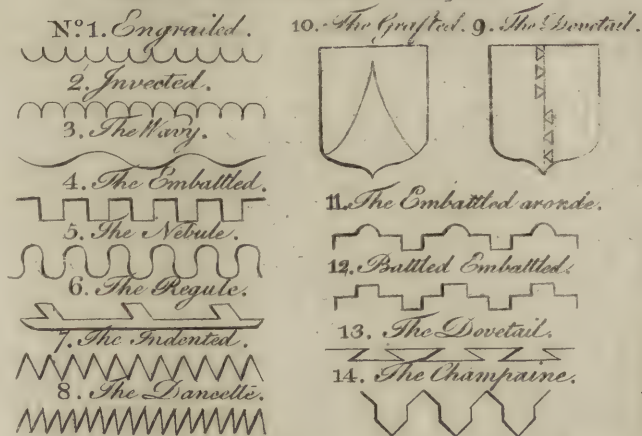 Nº. 1. Engrailed.
2. Invected.
3. The Wavy.
4. The Embattled.
5. The Nebule.
6. The Regule.
7. The Indented.
8. The Dancette.
10. The Grafted. 9. The Dovetail.
11. The Embattled aronde.
12. Battled Embattled.
13. The Dovetail.
14. The Champaine.